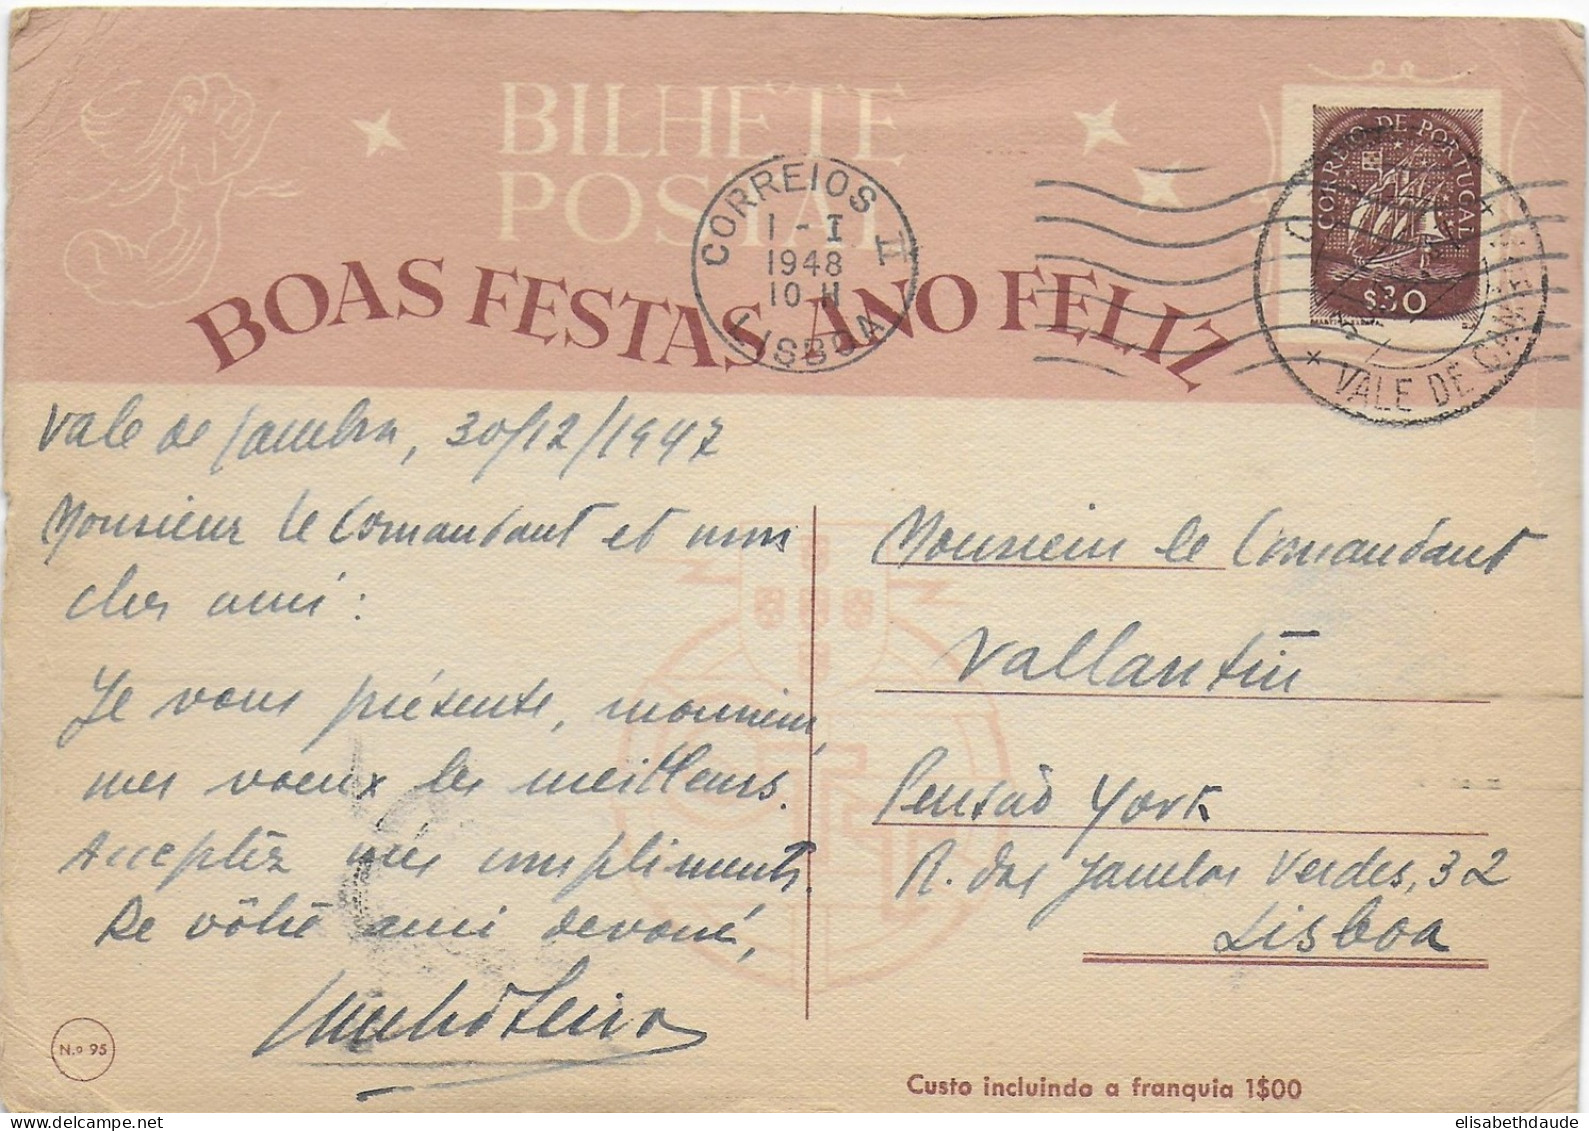 BILHETE
POSTAL
BOAS FESTAS ANO FELIZ
CORREIOS II
1 - I
1948
10 H
LISBOA
CORREIO DE PORTUGAL
$30
VALE DE CAMBRA
Vale de Cambra, 30/12/1947
Monsieur le Comandant et mon
cher ami:
Je vous présente, monsieur,
mes voeux les meilleurs.
Acceptez mes compliments.
De vôtre ami devoué,
Monsieur le Comandant
Vallantin
Pensão York
R. das Janelas Verdes, 32
Lisboa
N.º 95
Custo incluindo a franquia 1$00
elisabethdaude